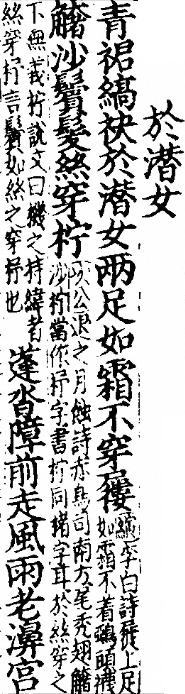 於潛女
青裙縞袂於潛女兩足如霜不穿屨李白詩屐上足
如霜不着鵶頭襪
觰沙鬢髮絲穿柠次公退之月蝕詩赤鳥司南方尾禿翅觰
沙柠當作杼字書柠同楮字耳於絲穿之
下無義杼說文曰機之持緯者
絲穿杼言鬢如絲之穿杼也蓬沓障前走風雨老濞宮